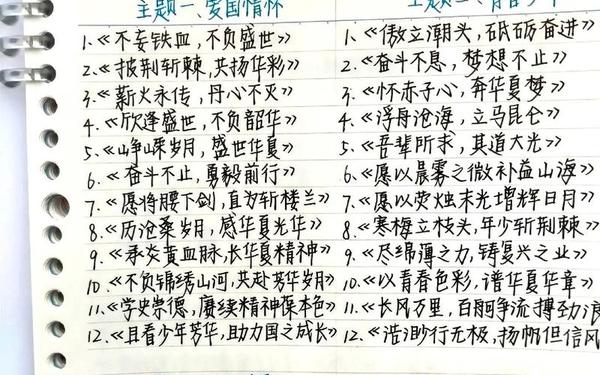 主题一、爱国情怀
1.《不妄铁血，不负盛世》
2.《披荆斩棘，共扬华彩》
3.《薪火永传，丹心不灭》
4.《欣逢盛世，不负韶华》
5.《峥嵘岁月，盛世华夏》
6.《奋斗不止，勇毅前行》
7.《愿将腰下剑，直为斩楼兰》
8.《历沧桑岁月，感华夏光华》
9.《承炎黄血脉，长华夏精神》
10.《不负锦绣山河，共赴芳华岁月》
11.《学史崇德，赓续精神葆本色》
12.《且看少年芳华，助力国之成长》
主题二、
1.《傲立潮头，砥砺奋进》
2.《奋斗不息，梦想不止》
3.《怀赤子心，奔华夏梦》
4.《浮舟沧海，立马昆仑》
5.《吾辈所求，其道大光》
6.《愿以晨雾之微补益山海》
7.《愿以荧烛末光增辉日月》
8.《寒梅立枝头，年少斩荆棘》
9.《尽绵薄之力，铸复兴之业》
10.《以青春色彩，谱华夏华章》
11.《长风万里，百舸争流搏劲浪
12.《浩渺行无极，扬帆但信风